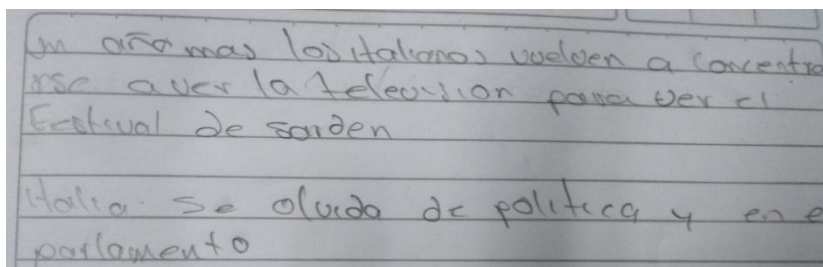 un año mas los italianos vuelven a concentra
rse a ver la television para ver el
Festival de sarden
italia se olvida de politica y en e
parlamento